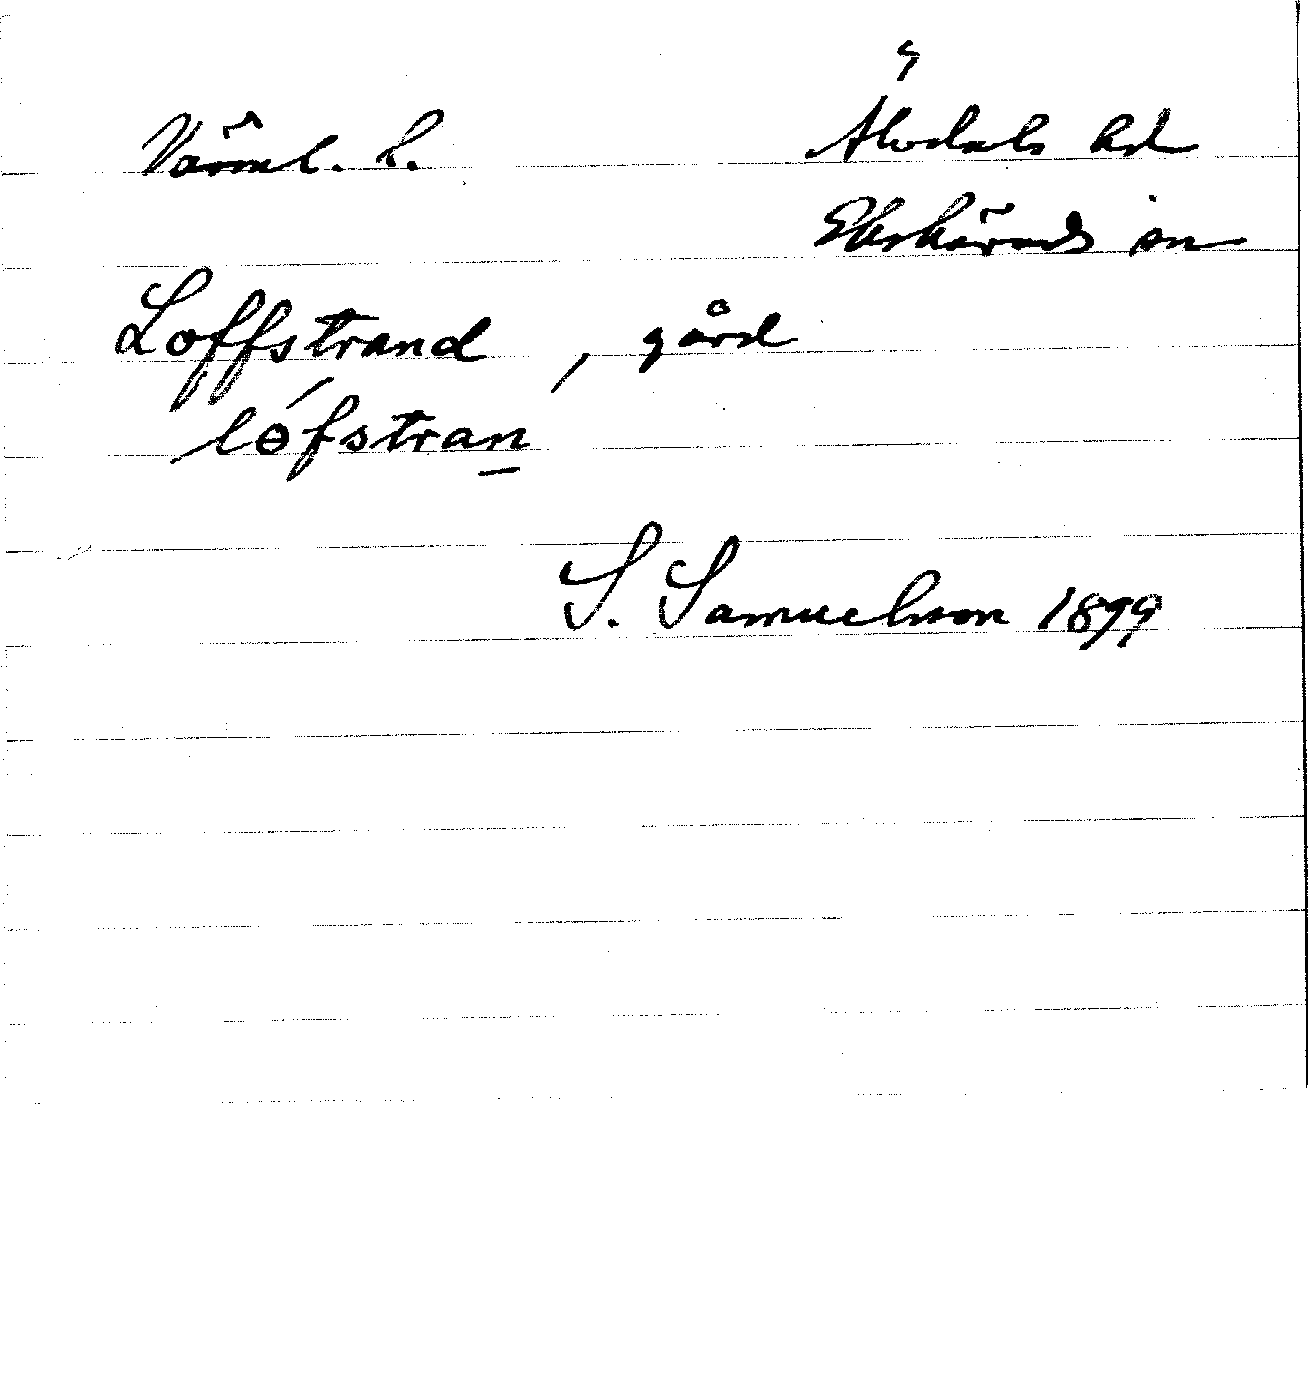 Värml. l. Älvdals hd
Ekshärads sn
Loffstrand, gård
lófstran
S. Samuelsson 1899